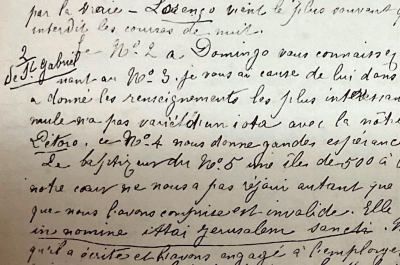 par la voie - Lorenzo vient le plus souvent
interdit les courses de nuit.
3
de St. Gabriel
No. 2 a Domingo vous connaissez
nant au No. 3. je vous ai cause de lui dans
a donné les renseignements les plus interessan
meule n'a pas varié d'un iota avec la nôtr
Petoro, ce No. 4 nous donne gandes esperance
Le baptiseur du No. 5 une île de 500 à
notre cœur ne nous a pas réjoui autant que
que nous l'avons comprise est invalide. Elle
in nomine ittai jerusalem sancti.
qu'il a écrite et l'avons engagé à l'employer